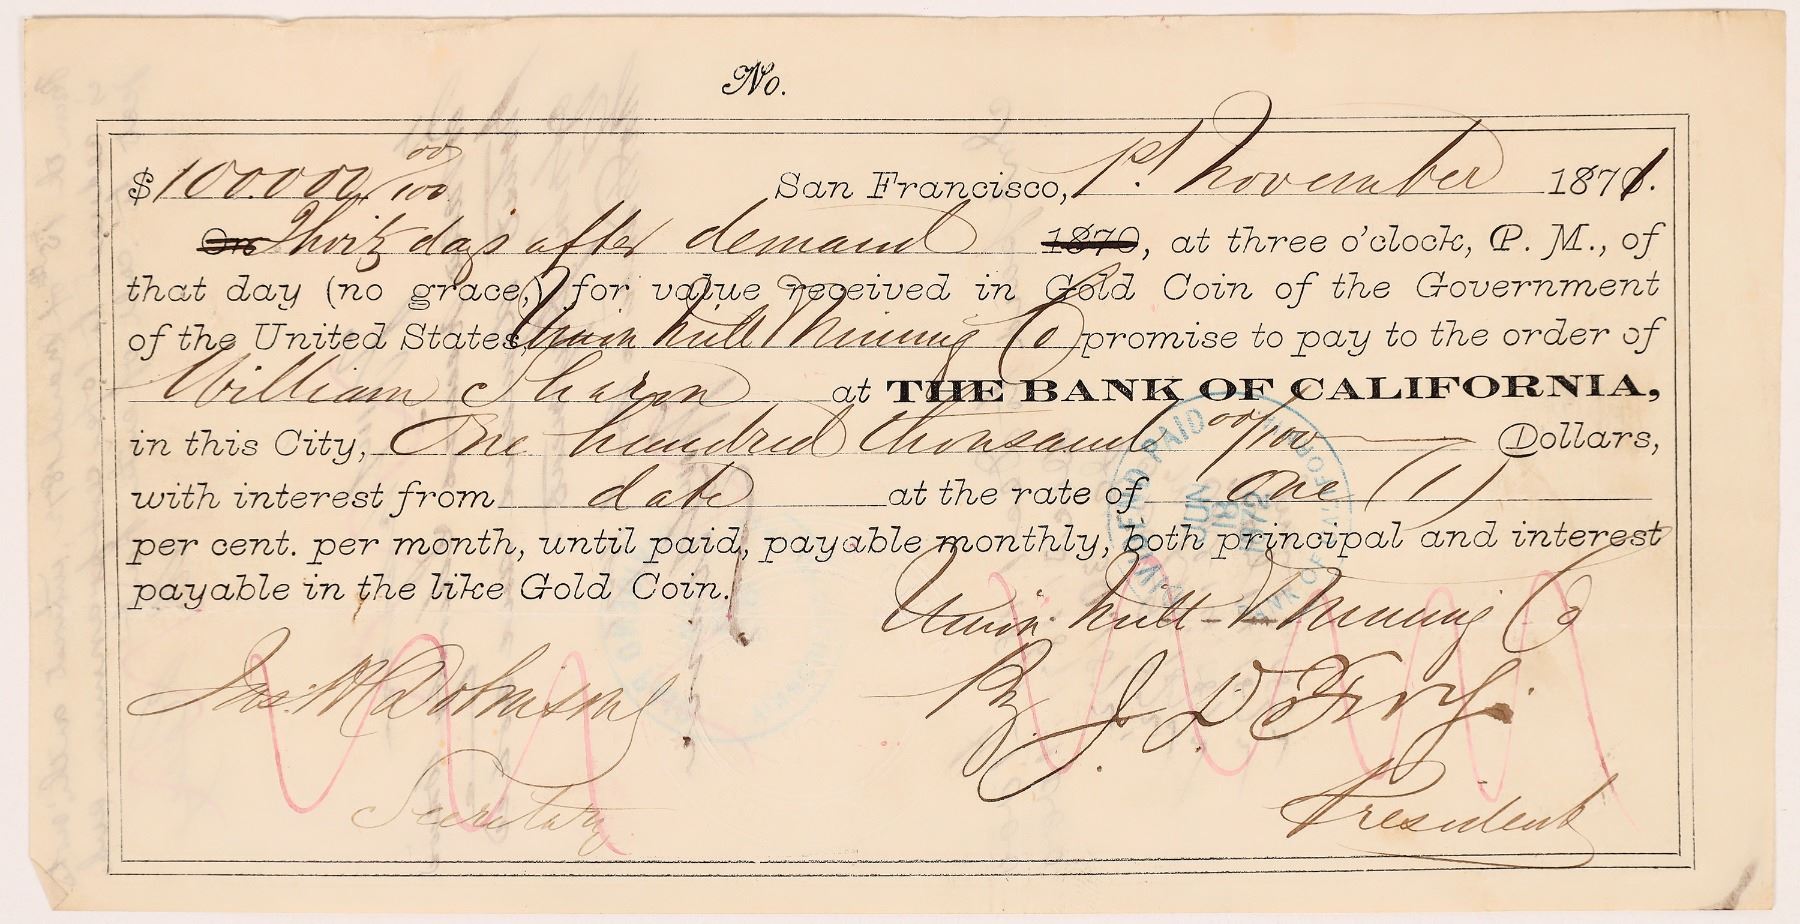 No.
$100.000 00/100 San Francisco, 1st November 1871.
On Thirty days after demand 1870, at three o'clock, P. M., of
that day (no grace,) for value received in Gold Coin of the Government
of the United States, Union Mill & Mining Co promise to pay to the order of
William Sharon at THE BANK OF CALIFORNIA,
in this City, One hundred thousand 00/100 Dollars,
with interest from date at the rate of one (1)
per cent. per month, until paid, payable monthly, both principal and interest
payable in the like Gold Coin.
PAID JUN 18 1872
Union Mill & Mining Co
By J. D. Fry.
President
Secretary